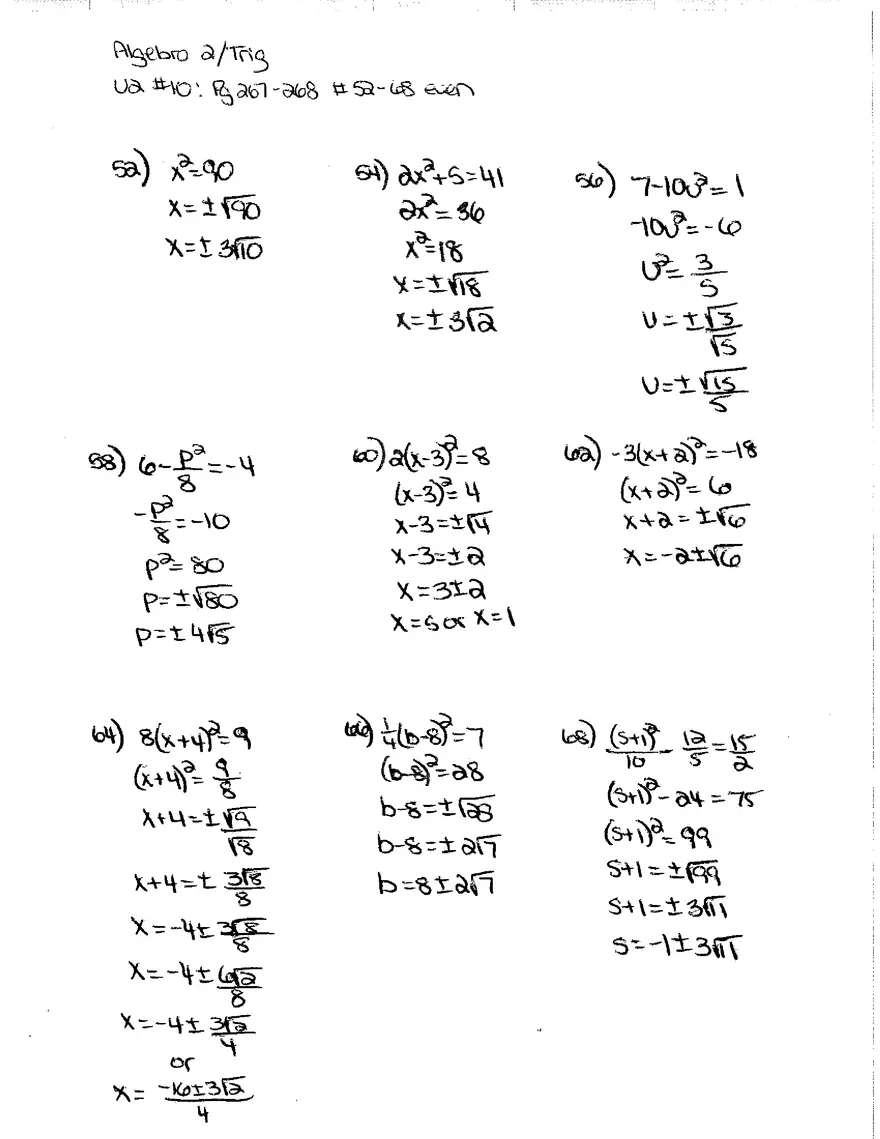 Algebra 2/Trig
U2 #10: Pg 267-268 #52-68 even
52) x²=90
x=±√90
x=±3√10
54) 2x²+5=41
2x²=36
x²=18
x=±√18
x=±3√2
56) 7-10u²=1
-10u²=-6
u²=3/5
u=±√3/√5
u=±√15/5
58) 6-p²/8=-4
-p²/8=-10
p²=80
p=±√80
p=±4√5
60) 2(x-3)²=8
(x-3)²=4
x-3=±√4
x-3=±2
x=3±2
x=5 or x=1
62) -3(x+2)²=-18
(x+2)²=6
x+2=±√6
x=-2±√6
64) 8(x+4)²=9
(x+4)²=9/8
x+4=±√9/√8
x+4=±3√8/8
x=-4±3√8/8
x=-4±6√2/8
x=-4±3√2/4
or
x=-16±3√2/4
66) 1/4(b-8)²=7
(b-8)²=28
b-8=±√28
b-8=±2√7
b=8±2√7
68) (s+1)²/10-12/5=15/2
(s+1)²-24=75
(s+1)²=99
s+1=±√99
s+1=±3√11
s=-1±3√11